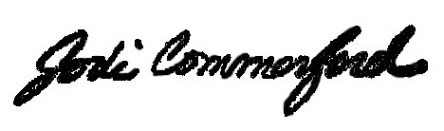 Jodi Commerford